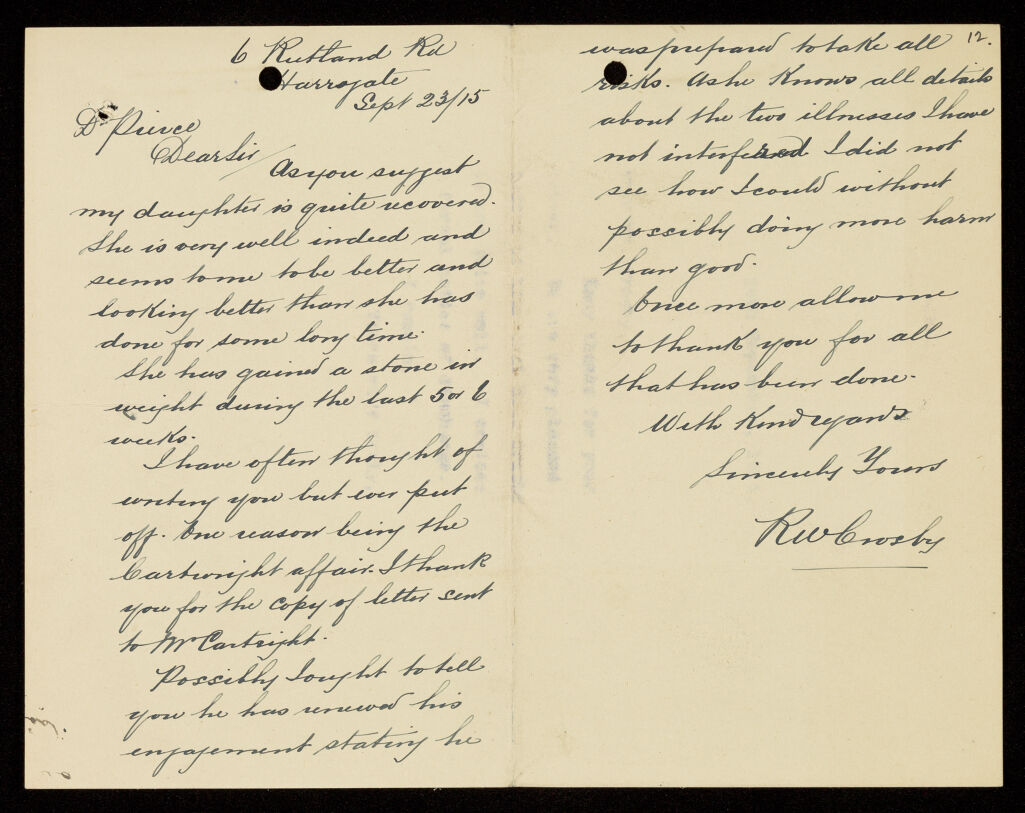 6 Rutland Rd
Harrogate
Sept 23/15
Dr Pierce
Dear Sir/
As you suggest
my daughter is quite recovered.
She is very well indeed and
seems to me to be better and
looking better than she has
done for some long time.
She has gained a stone in
weight during the last 5 or 6
weeks.
I have often thought of
writing you but ever put
off. One reason being the
Cartwright affair. I thank
you for the copy of letter sent
to Mr Cartright.
Possibly I ought to tell
you he has renewed his
engagement stating he
12.
was prepared to take all
risks. As he knows all details
about the two illnesses I have
not interfered I did not
see how I could without
possibly doing more harm
than good.
Once more allow me
to thank you for all
that has been done.
With kind regards
Sincerely Yours
RW Crosby